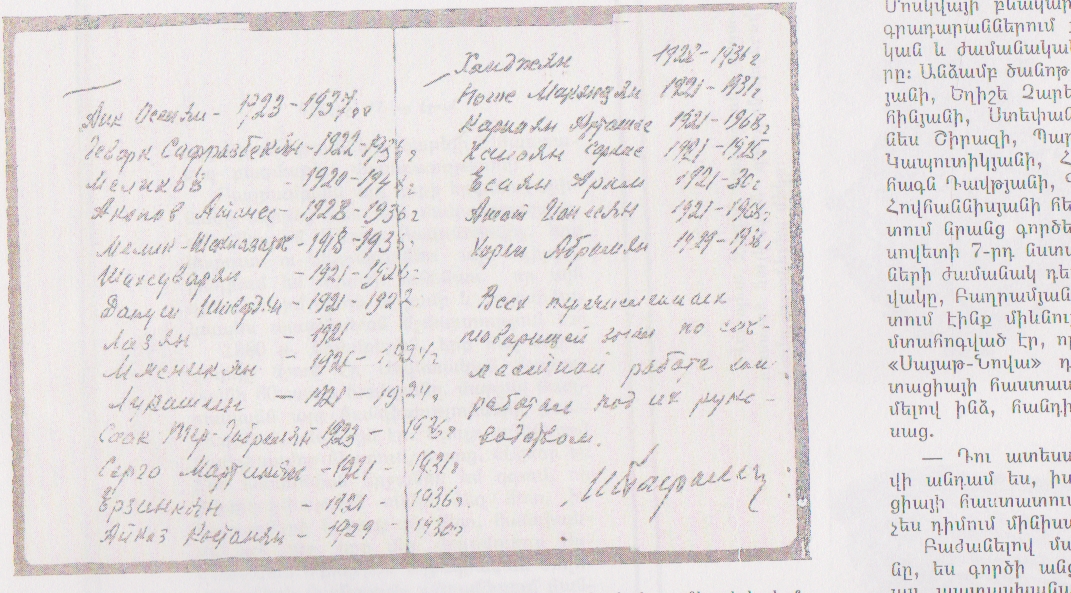 Айк Осепян - 1923 - 1937 г.
Геворк Сафразбекян - 1922 - 1936 г.
Меликов - 1920 - г
Акопов Атанес - 1928 - 1936 г
Мелик - - 1918 - 1935 г
Шахсуварян - 1921 -
Дануш Шавердян - 1921 - 1922
Лазян - 1921
Мясникян - 1921 - 1924 г
Лукашин - 1921 - 1924 г
Саак Тер-Габриелян 1923 - 1936 г
Серго Мартикян - 1921 - 1931 г
Ерзинкян - 1921 - 1936 г.
Айказ Костанян - 1929 - 1930 г
Ханджян 1922 - 1936 г
Погос Макинцян 1921 - 1931 г
Каринян Арташес 1921 - 1968 г
Ханоян Сергей 1921 - 1925 г
Есаян Арам 1921 - 30 г
Ашот Ионесян 1921 - 1968 г
Хорен Абрамян 1929 - 1936 г
Всех перечисленных
товарищей знаю по сов-
местной работе или
работал под их руко-
водством.
И Баграмян
Մոսկվայի
գրադարաններում
կան և ժամանակա
րը։ Անձամբ ծանոթ
յանի, Եղիշե Չարե
հինյանի, Ստեփան
նես Շիրազի, Պար
Կապուտիկյանի, Հ
հագն Դավթյանի, Գ
Հովհաննիսյանի հե
տում նրանց գործե
սովետի 7-րդ նստ
ների ժամանակ դե
վակը, Բաղրամյան
տում էինք միևնույ
մտահոգված էր, որ
«Սայաթ-Նովա» դ
տացիայի հաստատ
մելով ինձ, հանդի
սաց.
— Դու ատեստ
վի անդամ ես, իս
ցիայի հաստատու
չես դիմում մինիստ
Բաժանելով մա
նը, ես գործի անց